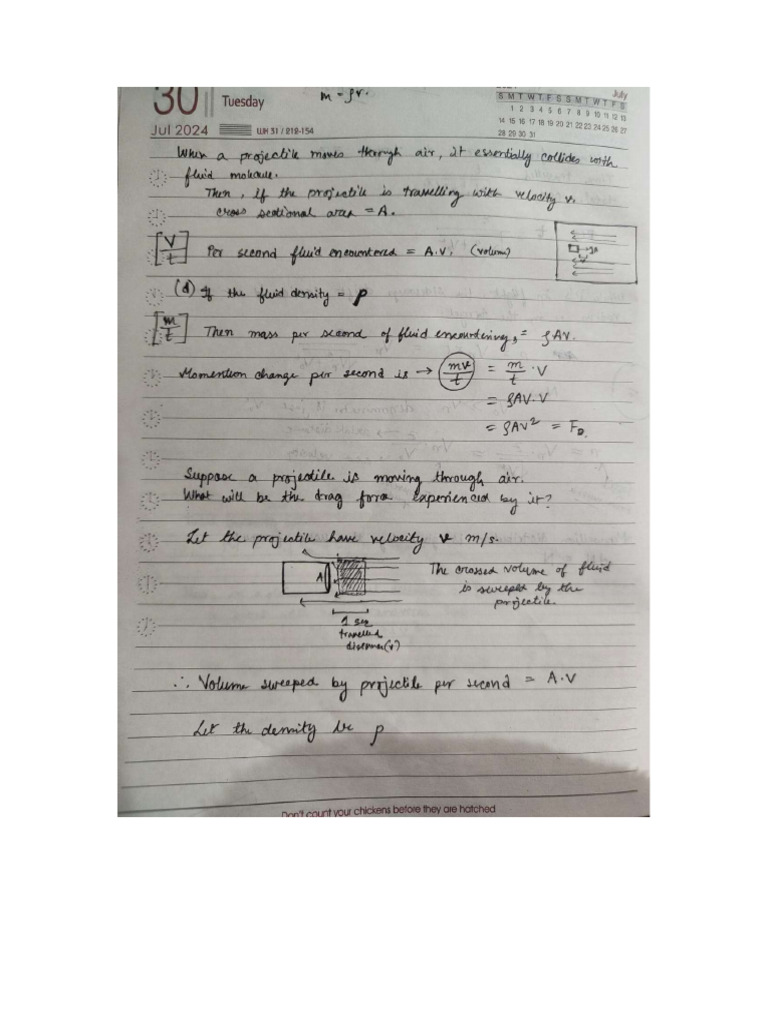 30 Tuesday
m = ρv.
July
S M T W T F S S M T W T F S
1 2 3 4 5 6 7 8 9 10 11 12 13
14 15 16 17 18 19 20 21 22 23 24 25 26 27
28 29 30 31
Jul 2024 WK 31 / 212-154
When a projectile moves through air, it essentially collides with
fluid molecule.
Then, if the projectile is travelling with velocity v.
cross sectional area = A.
[V/t] Per second fluid encountered = A.V, (volume)
(d) If the fluid density = ρ
[m/t] Then mass per second of fluid encountering, = ρAV.
Momention change per second is → (mv/t) = m/t · V
= ρAV. V
= ρAV² = F
Suppose a projectile is moving through air.
What will be the drag force experienced by it?
Let the projectile have velocity v m/s.
A
The crossed volume of fluid
is sweeped by the
projectile.
1 sec
travelled
distance (v)
∴ Volume sweeped by projectile per second = A·V
Let the density be ρ
Don't count your chickens before they are hatched